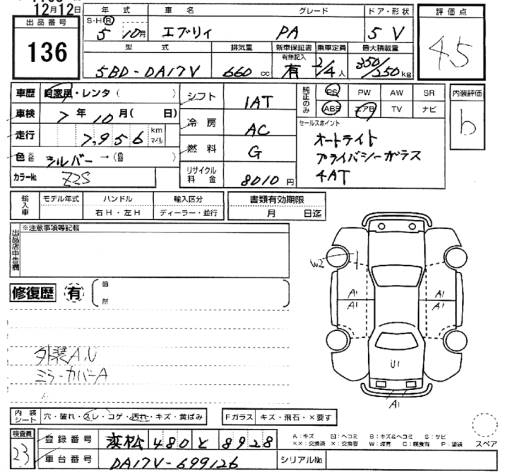 12月12日
出品番号
136
年式
車名
グレード
ドア・形状
評価点
S・H・R
5年10月
エブリィ
PA
5 V
4.5
型式
排気量
新車保証書
有無記入
乗車定員
最大積載量
5BD-DA17V
660 cc
有
2/4人
350/250 kg
車歴
自家用・レンタ( )
シフト
IAT
装備品のみ
PS PW AW SR
ABS エアB TV ナビ
内装評価
b
車検
7年10月( 日)
冷房
AC
セールスポイント
オートライト
プライバシーガラス
4AT
走行
7,956
km
マイル
燃料
G
色
シルバー→( 色 )
カラーNo.
Z2S
リサイクル料金
8010円
輸入車
モデル年式
ハンドル
右H・左H
輸入区分
ディーラー・並行
書類有効期限
月 日迄
出品店申告欄
※注意事項等記載
修復歴
有
箇所
W2
A1
A1
A1
A1
U1
A1
外装A,U
ミラーカバーA
内装シート
穴・破れ・スレ・コゲ・汚れ・キズ・黄ばみ
Fガラス
キズ・飛石・×要す
検査員
23
登録番号
浜松 480 と 8928
車台番号
DA17V-699126
シリアルNo.
スペア